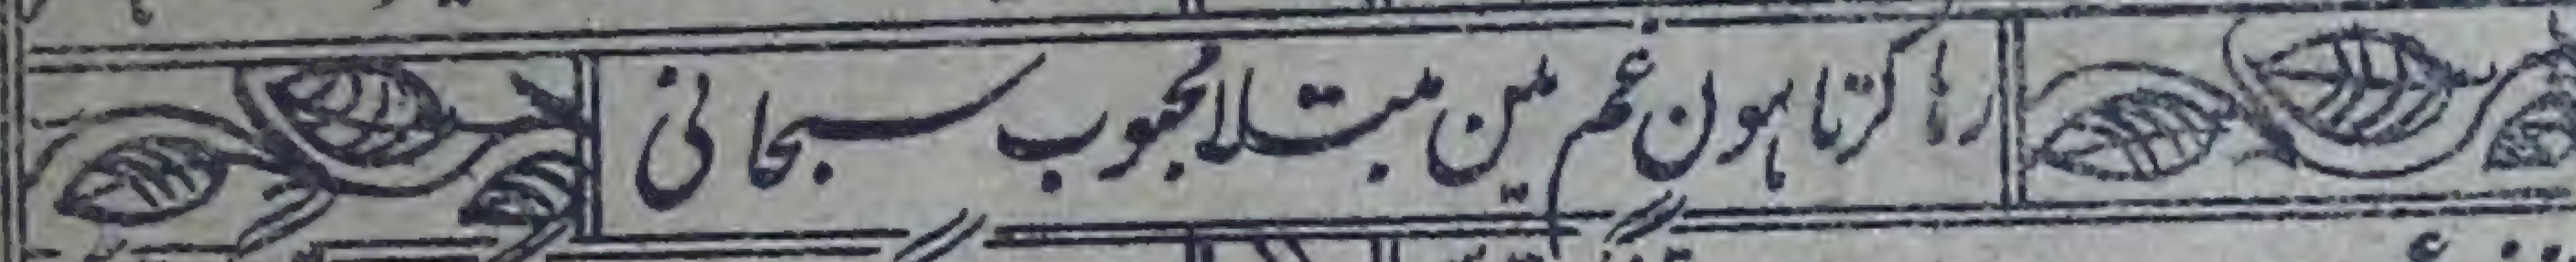 رہا کرتا ہون غم مین مبتلا محبوب سبحانی